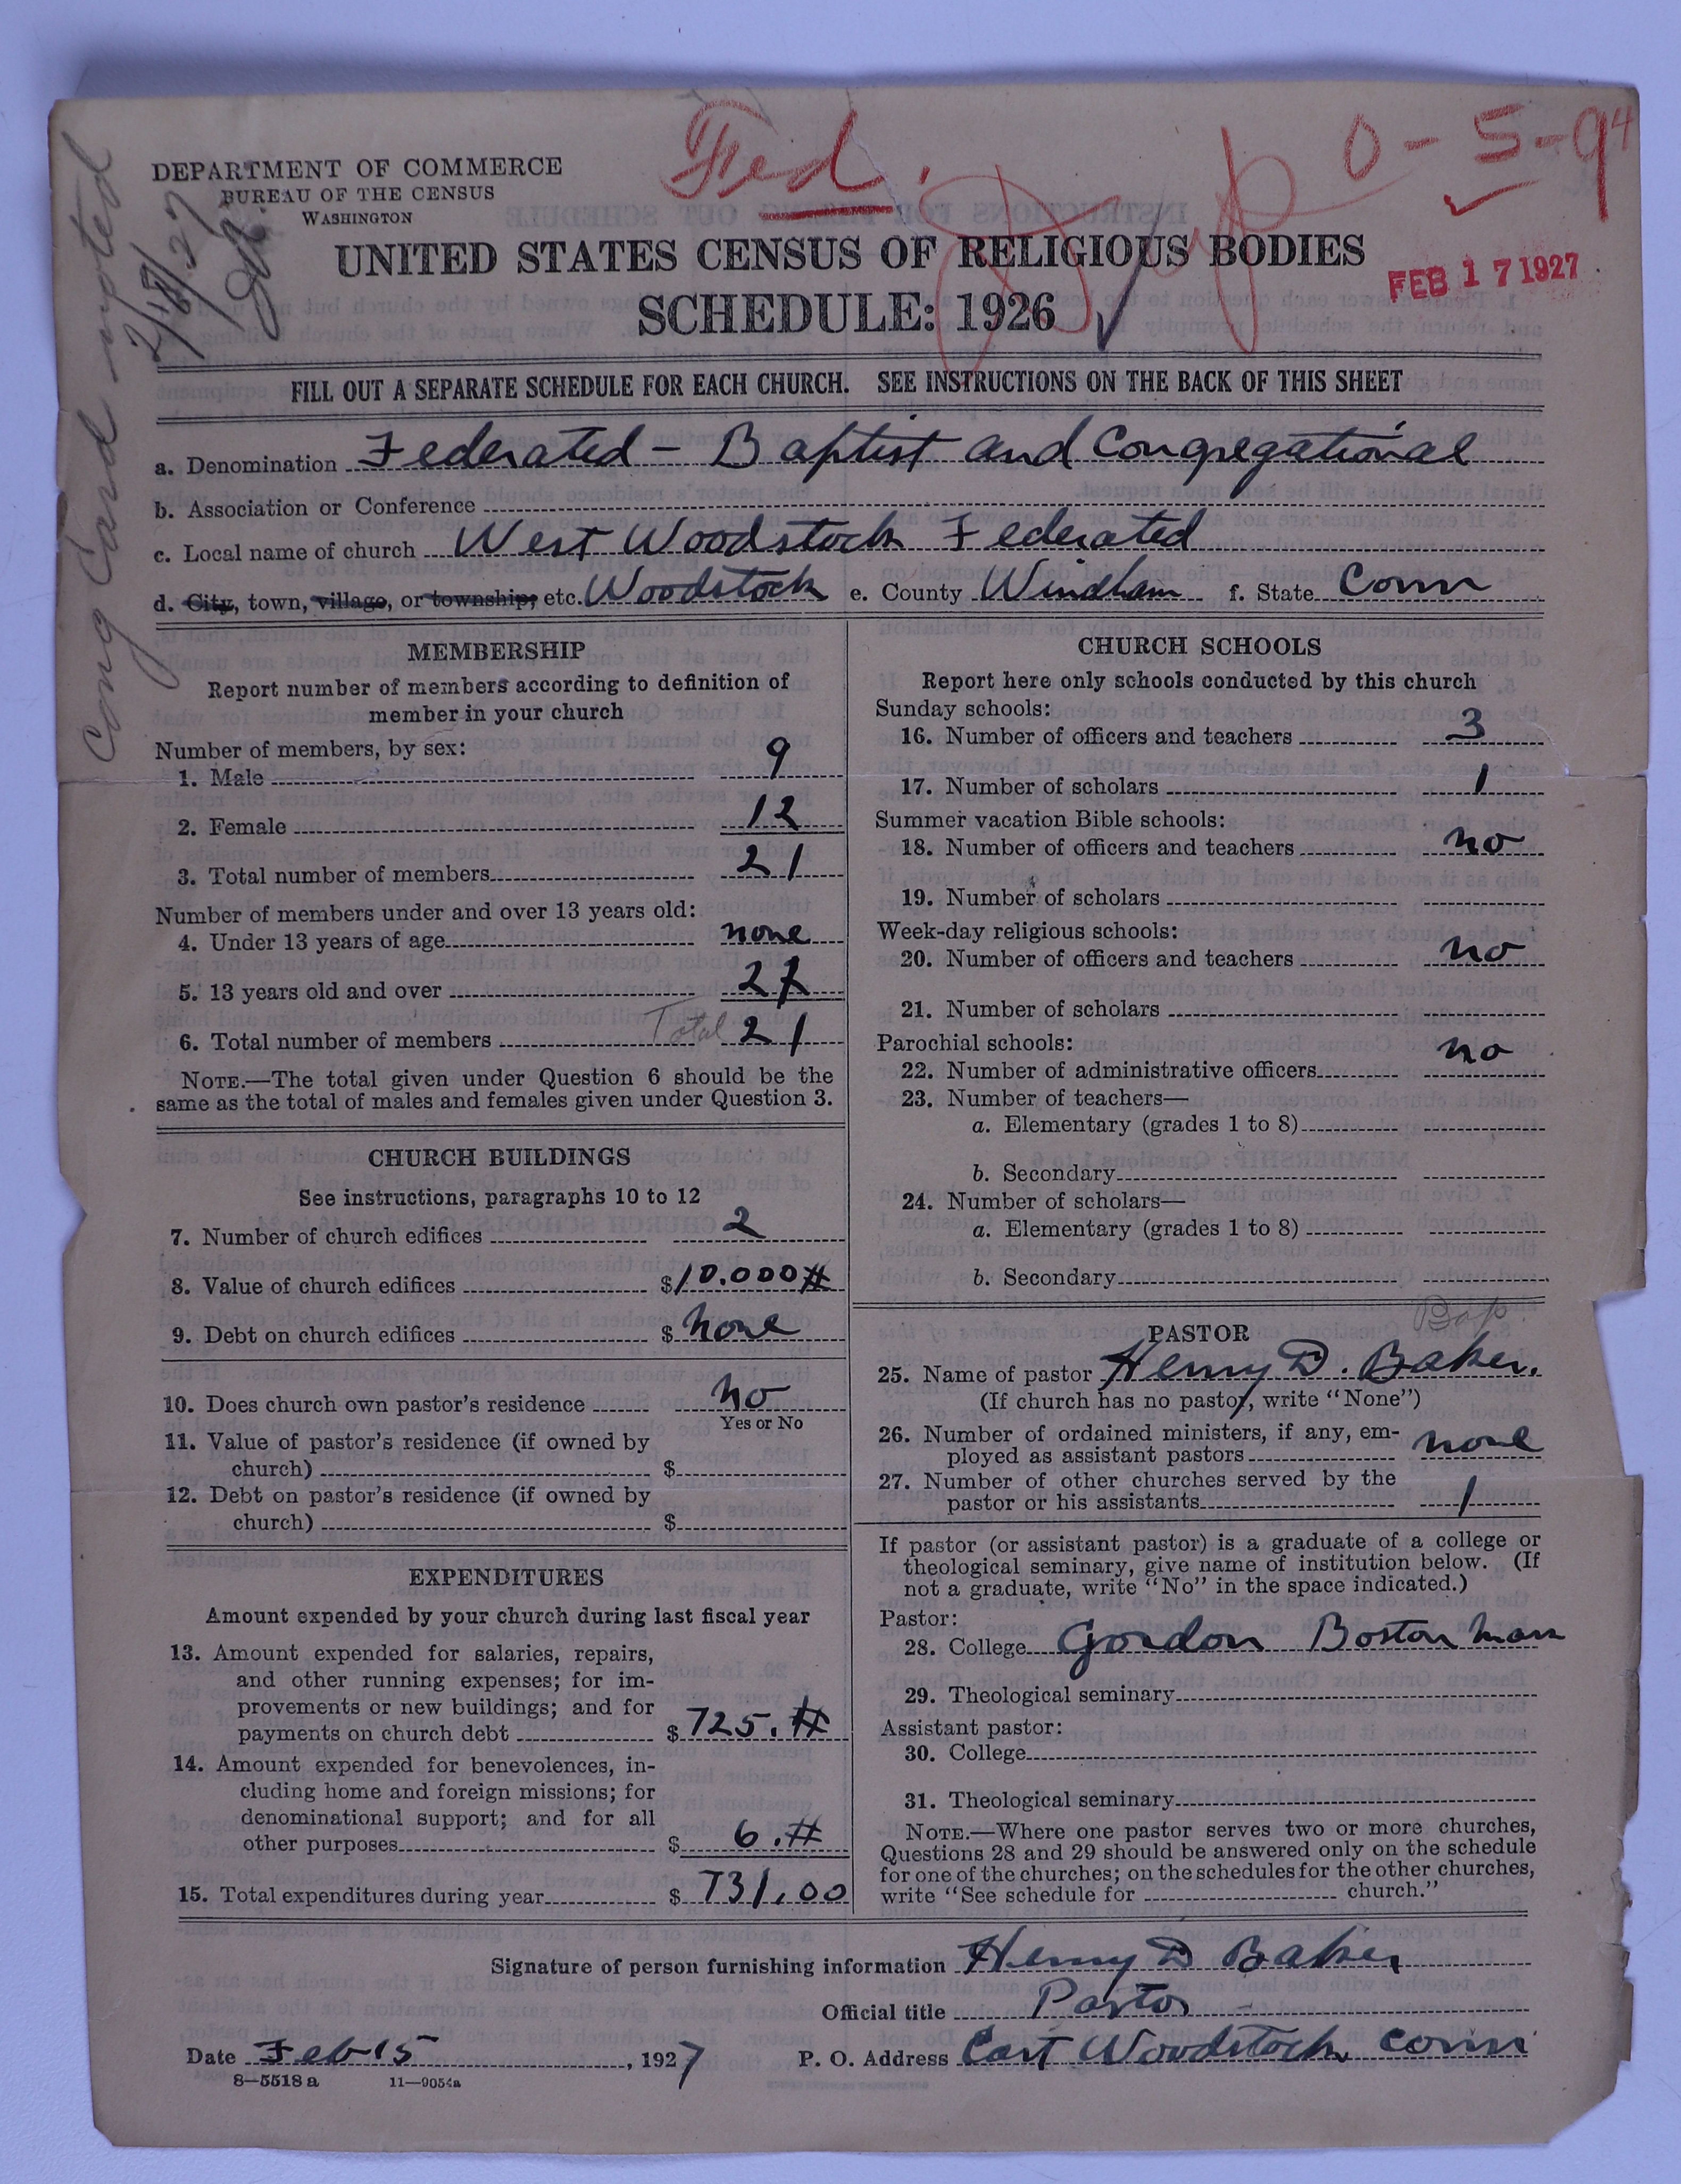 Fed. Dup 0-5-94
DEPARTMENT OF COMMERCE
BUREAU OF THE CENSUS
WASHINGTON
Cong Card noted
2/18/27
UNITED STATES CENSUS OF RELIGIOUS BODIES
SCHEDULE: 1926
FEB 17 1927
FILL OUT A SEPARATE SCHEDULE FOR EACH CHURCH. SEE INSTRUCTIONS ON THE BACK OF THIS SHEET
a. Denomination Federated - Baptist and Congregational
b. Association or Conference
c. Local name of church West Woodstock Federated
d. City, town, village, or township, etc. Woodstock e. County Windham f. State Conn
MEMBERSHIP
Report number of members according to definition of
member in your church
Number of members, by sex:
1. Male 9
2. Female 12
3. Total number of members 21
Number of members under and over 13 years old:
4. Under 13 years of age none
5. 13 years old and over 21
6. Total number of members Total 21
NOTE.—The total given under Question 6 should be the
same as the total of males and females given under Question 3.
CHURCH BUILDINGS
See instructions, paragraphs 10 to 12
7. Number of church edifices 2
8. Value of church edifices $10.000#
9. Debt on church edifices $ None
10. Does church own pastor's residence No
Yes or No
11. Value of pastor's residence (if owned by
church) $
12. Debt on pastor's residence (if owned by
church) $
EXPENDITURES
Amount expended by your church during last fiscal year
13. Amount expended for salaries, repairs,
and other running expenses; for im-
provements or new buildings; and for
payments on church debt $725.#
14. Amount expended for benevolences, in-
cluding home and foreign missions; for
denominational support; and for all
other purposes $ 6.#
15. Total expenditures during year $ 731.00
CHURCH SCHOOLS
Report here only schools conducted by this church
Sunday schools:
16. Number of officers and teachers 3
17. Number of scholars 1
Summer vacation Bible schools:
18. Number of officers and teachers no
19. Number of scholars
Week-day religious schools:
20. Number of officers and teachers no
21. Number of scholars
Parochial schools:
22. Number of administrative officers no
23. Number of teachers—
a. Elementary (grades 1 to 8)
b. Secondary
24. Number of scholars—
a. Elementary (grades 1 to 8)
b. Secondary
Bap.
PASTOR
25. Name of pastor Henry D. Baker.
(If church has no pastor, write "None")
26. Number of ordained ministers, if any, em-
ployed as assistant pastors none
27. Number of other churches served by the
pastor or his assistants 1
If pastor (or assistant pastor) is a graduate of a college or
theological seminary, give name of institution below. (If
not a graduate, write "No" in the space indicated.)
Pastor:
28. College Gordon Boston Mass
29. Theological seminary
Assistant pastor:
30. College
31. Theological seminary
NOTE.—Where one pastor serves two or more churches,
Questions 28 and 29 should be answered only on the schedule
for one of the churches; on the schedules for the other churches,
write "See schedule for church."
Signature of person furnishing information Henry D Baker
Official title Pastor
Date Feb 15, 1927 P. O. Address East Woodstock Conn
8—5518 a 11—9054a